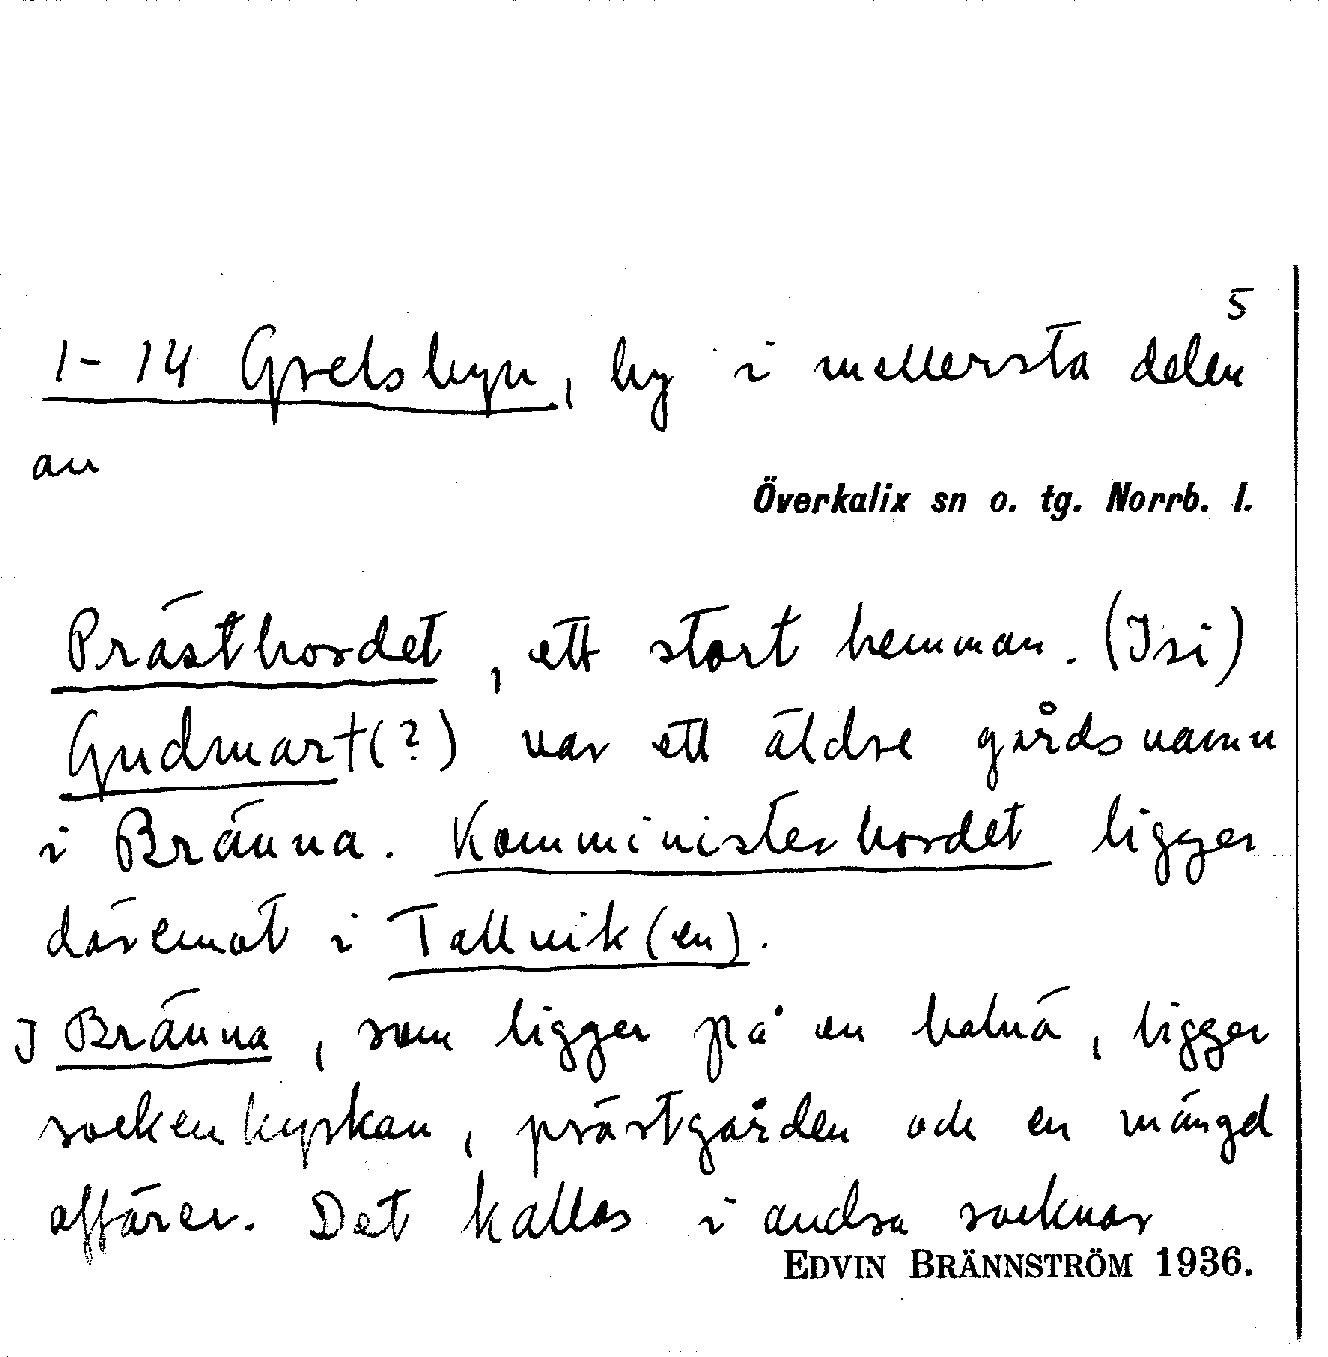 5
1-14 Grelsbyn, by i mellersta delen
av
Överkalix sn o. tg. Norrb. l.
Prästbordet, ett stort hemman. (Isi)
Gudmart(?) var ett äldre gårdsnamn
i Bränna. Komministerbordet ligger
däremot i Tallvik(en).
I Bränna, som ligger på en halvö, ligger
sockenkyrkan, prästgården och en mängd
affärer. Det kallas i andra socknar
EDVIN BRÄNNSTRÖM 1936.